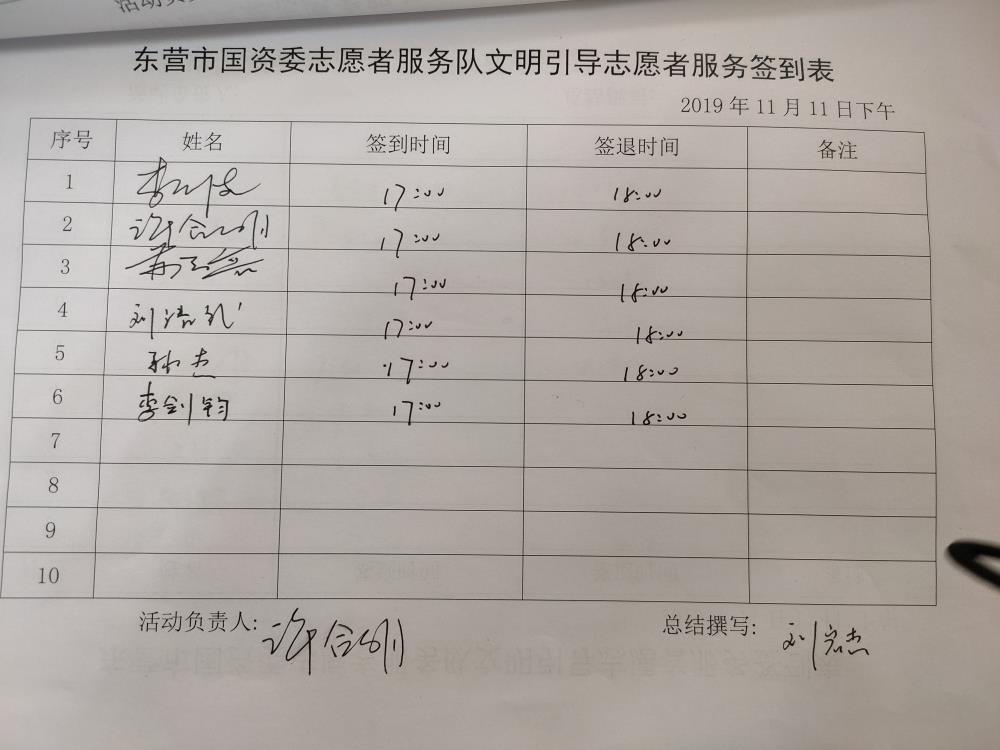 活动负
东营市国资委志愿者服务队文明引导志愿者服务签到表
2019 年 11 月 11 日下午
序号 姓名 签到时间 签退时间 备注
1 17:00 18:00
2 许合刚 17:00 18:00
3 17:00 18:00
4 刘 17:00 18:00
5 孙杰 17:00 18:00
6 李剑钧 17:00 18:00
7
8
9
10
活动负责人: 许合刚 总结撰写: 刘宏杰